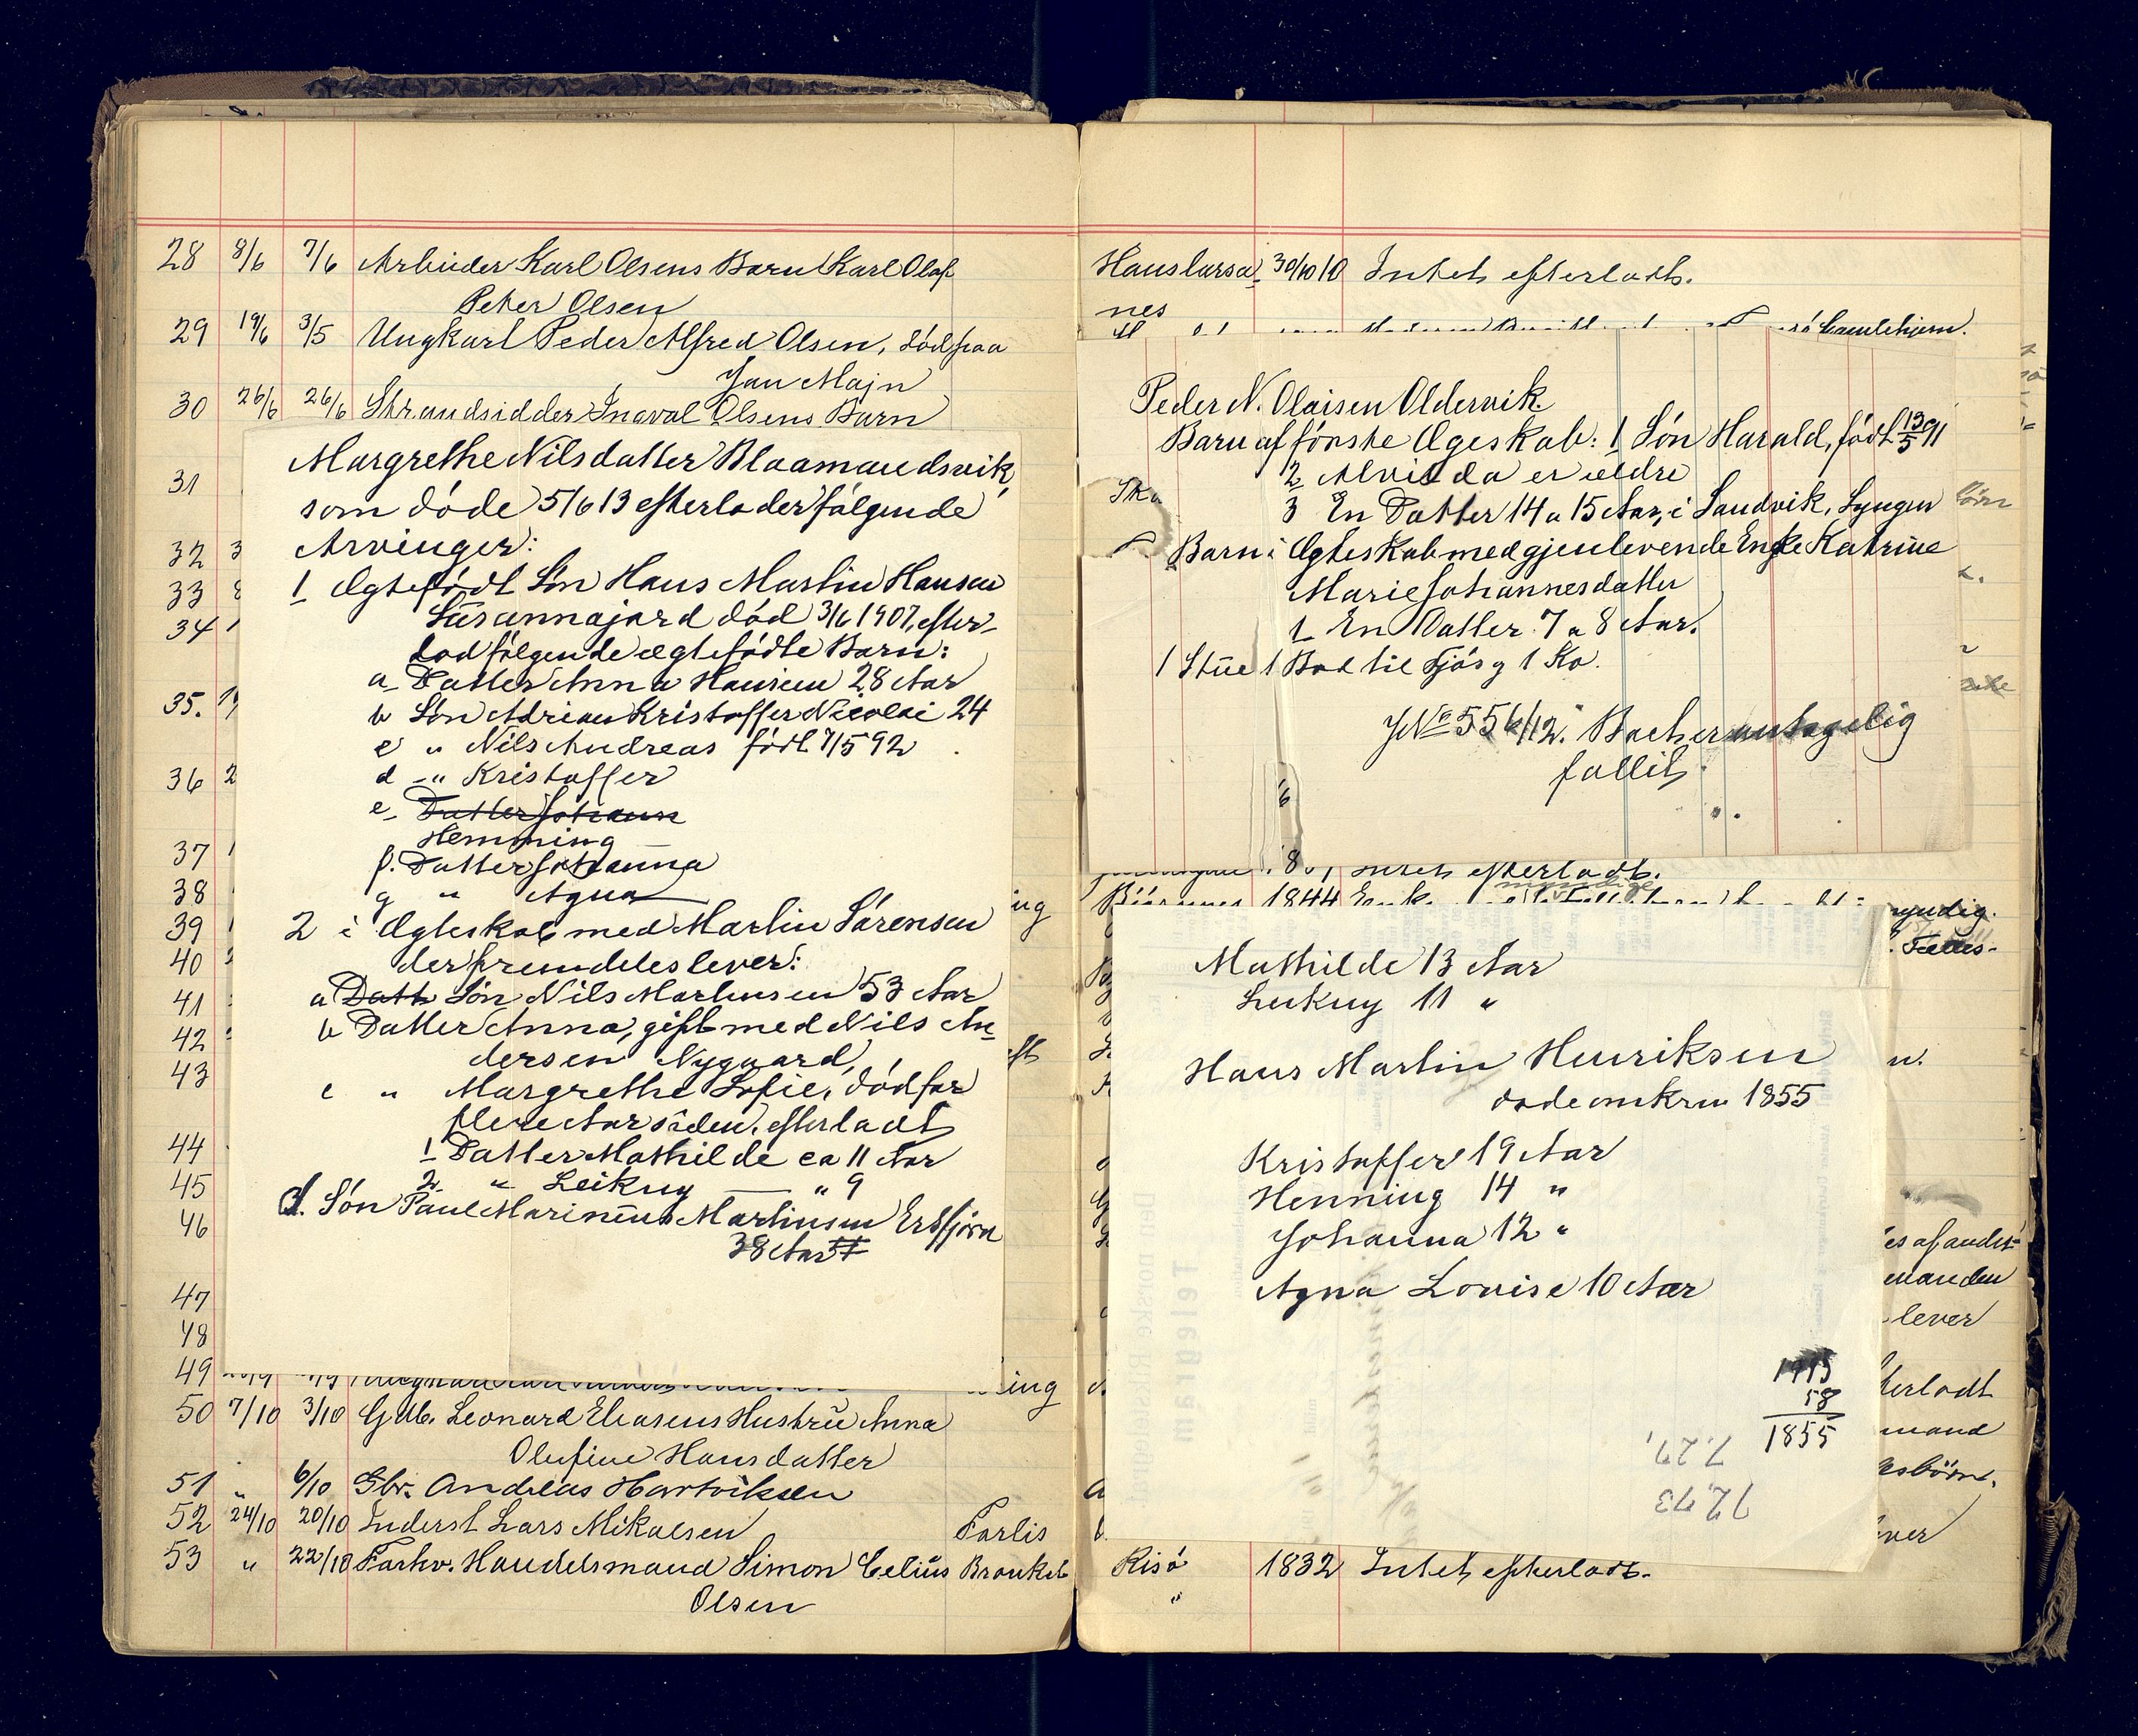 28 8/6 7/6 Arbeider Karl Olsens Barn Karl Olaf
Peter Olsen
29 19/6 3/5 Ungkarl Peder Alfred Olsen, död paa
Jan Majn
30 26/6 26/6 Strandsidder Ingval Olsens Barn
31
32 3
33
34
35.
36 2
37
38
39
40
41
42
43
44
45
46
47
48
49
Margrethe Nilsdatter Blaamandsvik,
som döde 5/6 13 efterlader følgende
Arvinger:
1 Ægtefødt Sön Hans Martin Hansen
Sürannajord död 3/6 1907, efter-
lod følgende ægtefødte Barn:
a Datter Anna Hansen 28 Aar
b Sön Adrian Kristoffer Nicolai 24
c " Nils Andreas födt 7/5 92
d " Kristoffer
e Datter Johanna
Hemming
f. Datter Johanna
g " Agna
2 i Ægteskab med Martin Sörensen
der fremdeles lever:
a Datt Sön Nils Martinsen 53 Aar
b Datter Anna, gift med Nils An-
dersen Nygaard,
c " Margrethe Sofie, död for
flere Aar siden, efterladt
1 Datter Mathilde ca 11 Aar
2 " Leikny — " 9
d. Sön Paul Marinius Martinsen Ersfjord
38 Aar
ing
50 7/10 3/10 Gdb. Leonard Eliasens Hustrü Anna
Olufine Hansdatter
51 " 6/10 Gbr. Andreas Hartviksen
52 24/10 20/10 Inderst Lars Mikalsen Forlis
53 " 22/10 Forhv. Handelsmand Simon Celiüs Bronkeb
Olsen
Hanslarsa- 30/10 10 Intet efterladt.
nes
Peder N. Olaisen Oldervik.
Barn af förste Ægeskab: 1 Sön Harald, födt 13/5 91
2 Alvilda er ældre
3 En Datter 14 a 15 Aar, i Sandvik, Lyngen
Barn i Ægteskab med gjenlevende Enke Katrine
Marie Johannesdatter
1 En Datter 7 a 8 Aar.
1 Stüe 1 Bod til Fjös og 1 Ko.
JNo 556/12. Boet er antagelig
fallit.
Intet efterladt.
1844
myndig.
Fælles-
Mathilde 13 Aar
Leikny 11 "
Hans Martin Henriksen
döde omkring 1855
Kristoffer 19 Aar
Henning 14 "
Johanna 12 "
Agna Lovise 10 Aar
1913
58
1855
Telegram
emanden
lever
mand
Risö 1832 Intet efterladt.
"